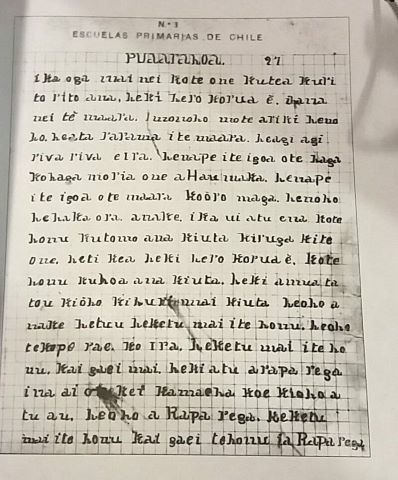 N.º 1
ESCUELAS PRIMARIAS DE CHILE
PUAARAHOA. 27
ika oga mai nei kote one kutea kuri
to rito ana, heki hero korua é. Dana
nei te maara. mote ariki heno
ho, heata rarama ite maara, heagi agi
riva riva era, henape ite igoa ote haga
kohaga moria one a Hau maka, henape
ite igoa ote maara koôro maga, henoho
hehaka ora, anake, ika ui atu ena kote
honu kutomo ana kiuta kiruga kite
one, heti kea heki hero korua é, kote
honu kuhoa ana kiuta, heki amua ta
tou kiôho kihuri mai kiuta heoho a
nake hetuu heketu mai ite honu, heoho
tekope rae, ko Ira, heketu mai ite ho
nu, kai gaei mai, heki atu arapa rega
ina ai kamaeha koe kioho a
tu au, heoho a Rapa rega. heketu
mai ite honu kai gaei tehonu ia Rapa rega